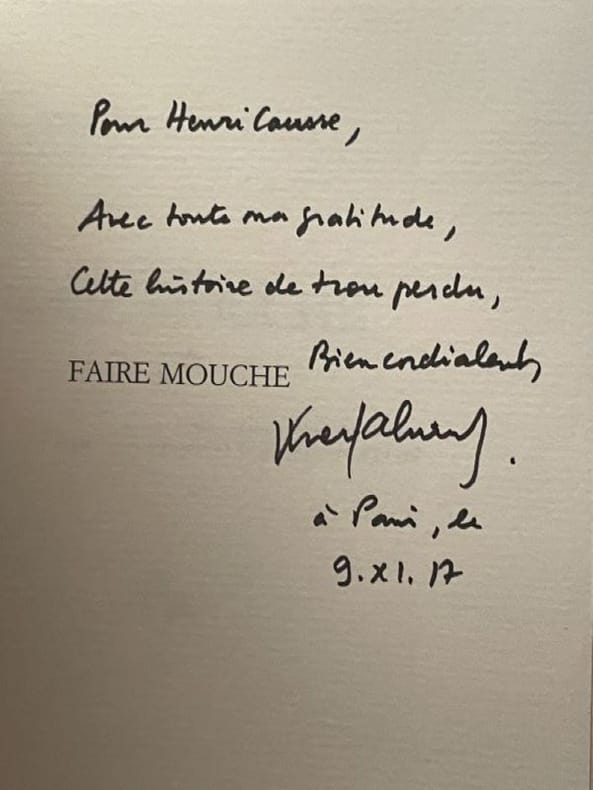 Pour Henri Causse,
Avec toute ma gratitude,
Cette histoire de trou perdu,
Bien cordialement,
FAIRE MOUCHE
à Paris, le
9.XI.17